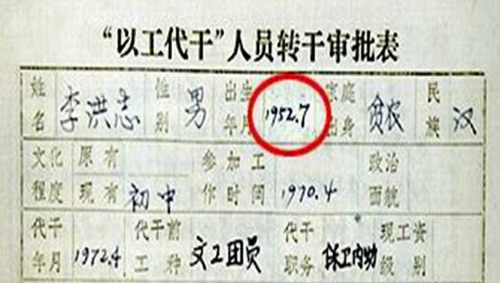 “以工代干”人员转干审批表
姓名 李洪志 性别 男 出生年月 1952.7 家庭出身 贫农 民族 汉
文化程度 原有 现有 初中 参加工作时间 1970.4 政治面貌
代干年月 1972.4 代干前工种 文工团员 代干职务 保卫内勤 现工资级别